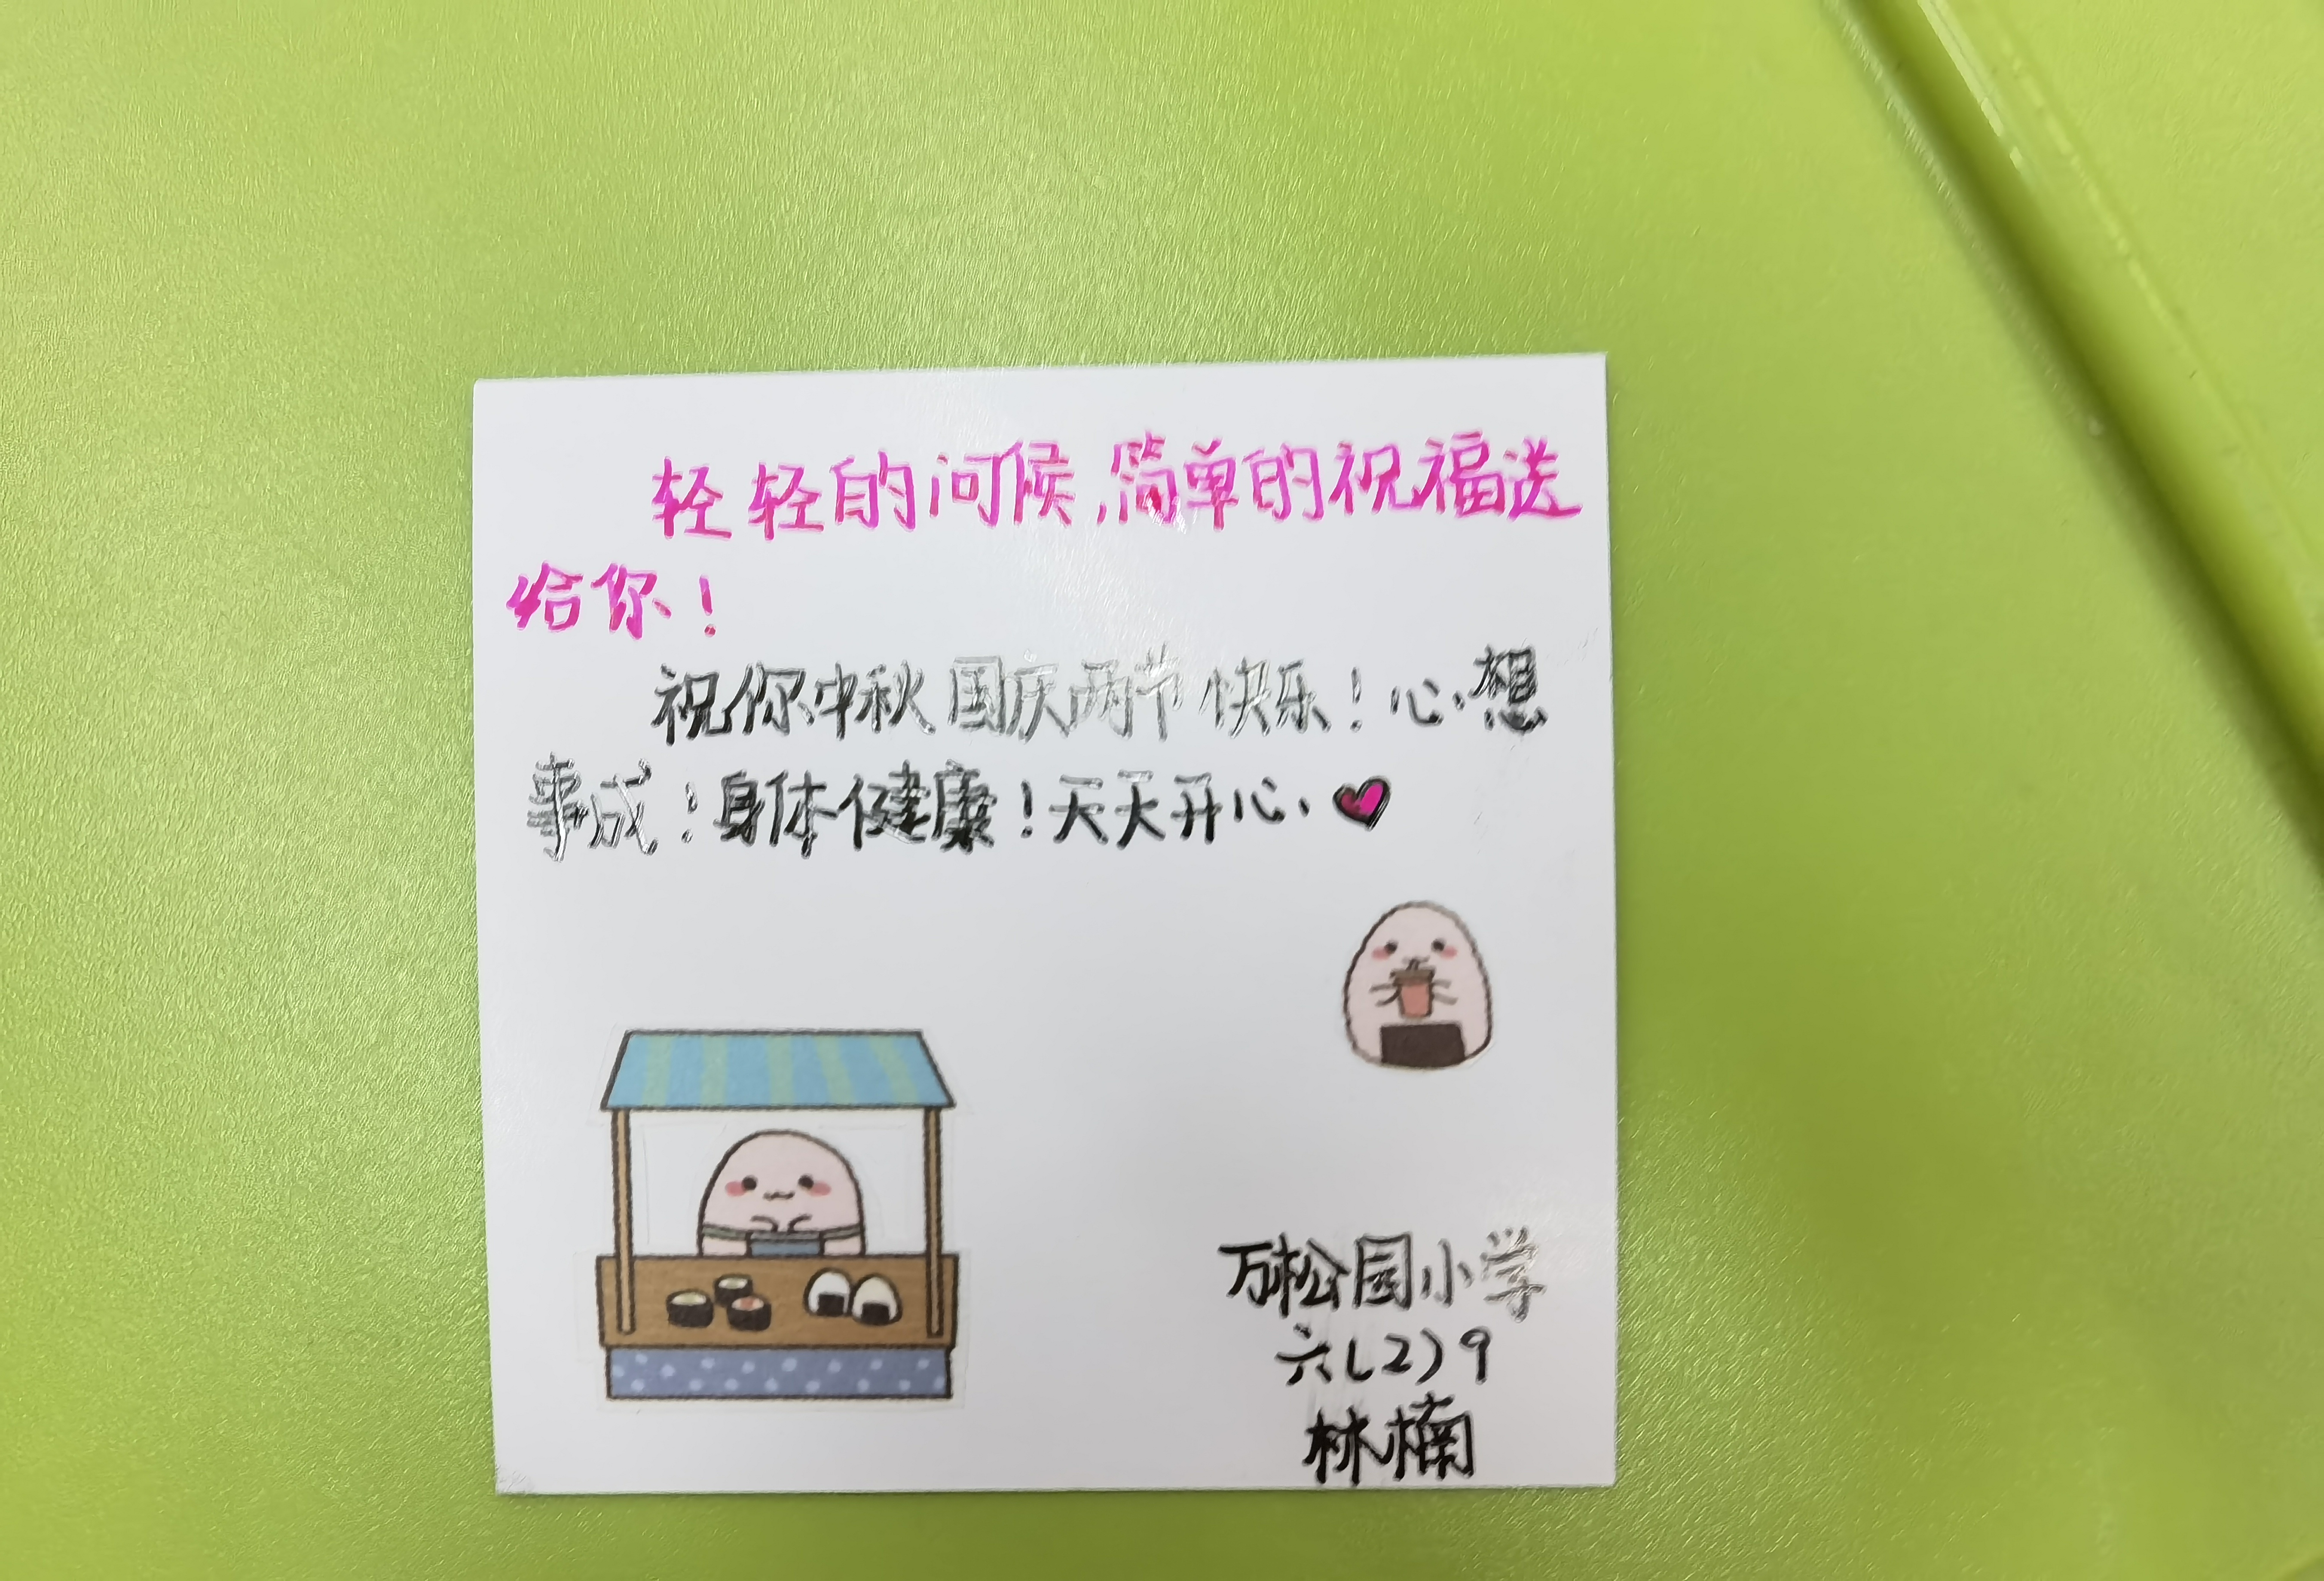 轻轻的问候,简单的祝福送
给你!
祝你中秋国庆两节快乐!心想
事成!身体健康!天天开心
万松园小学
六(2)9
林楠